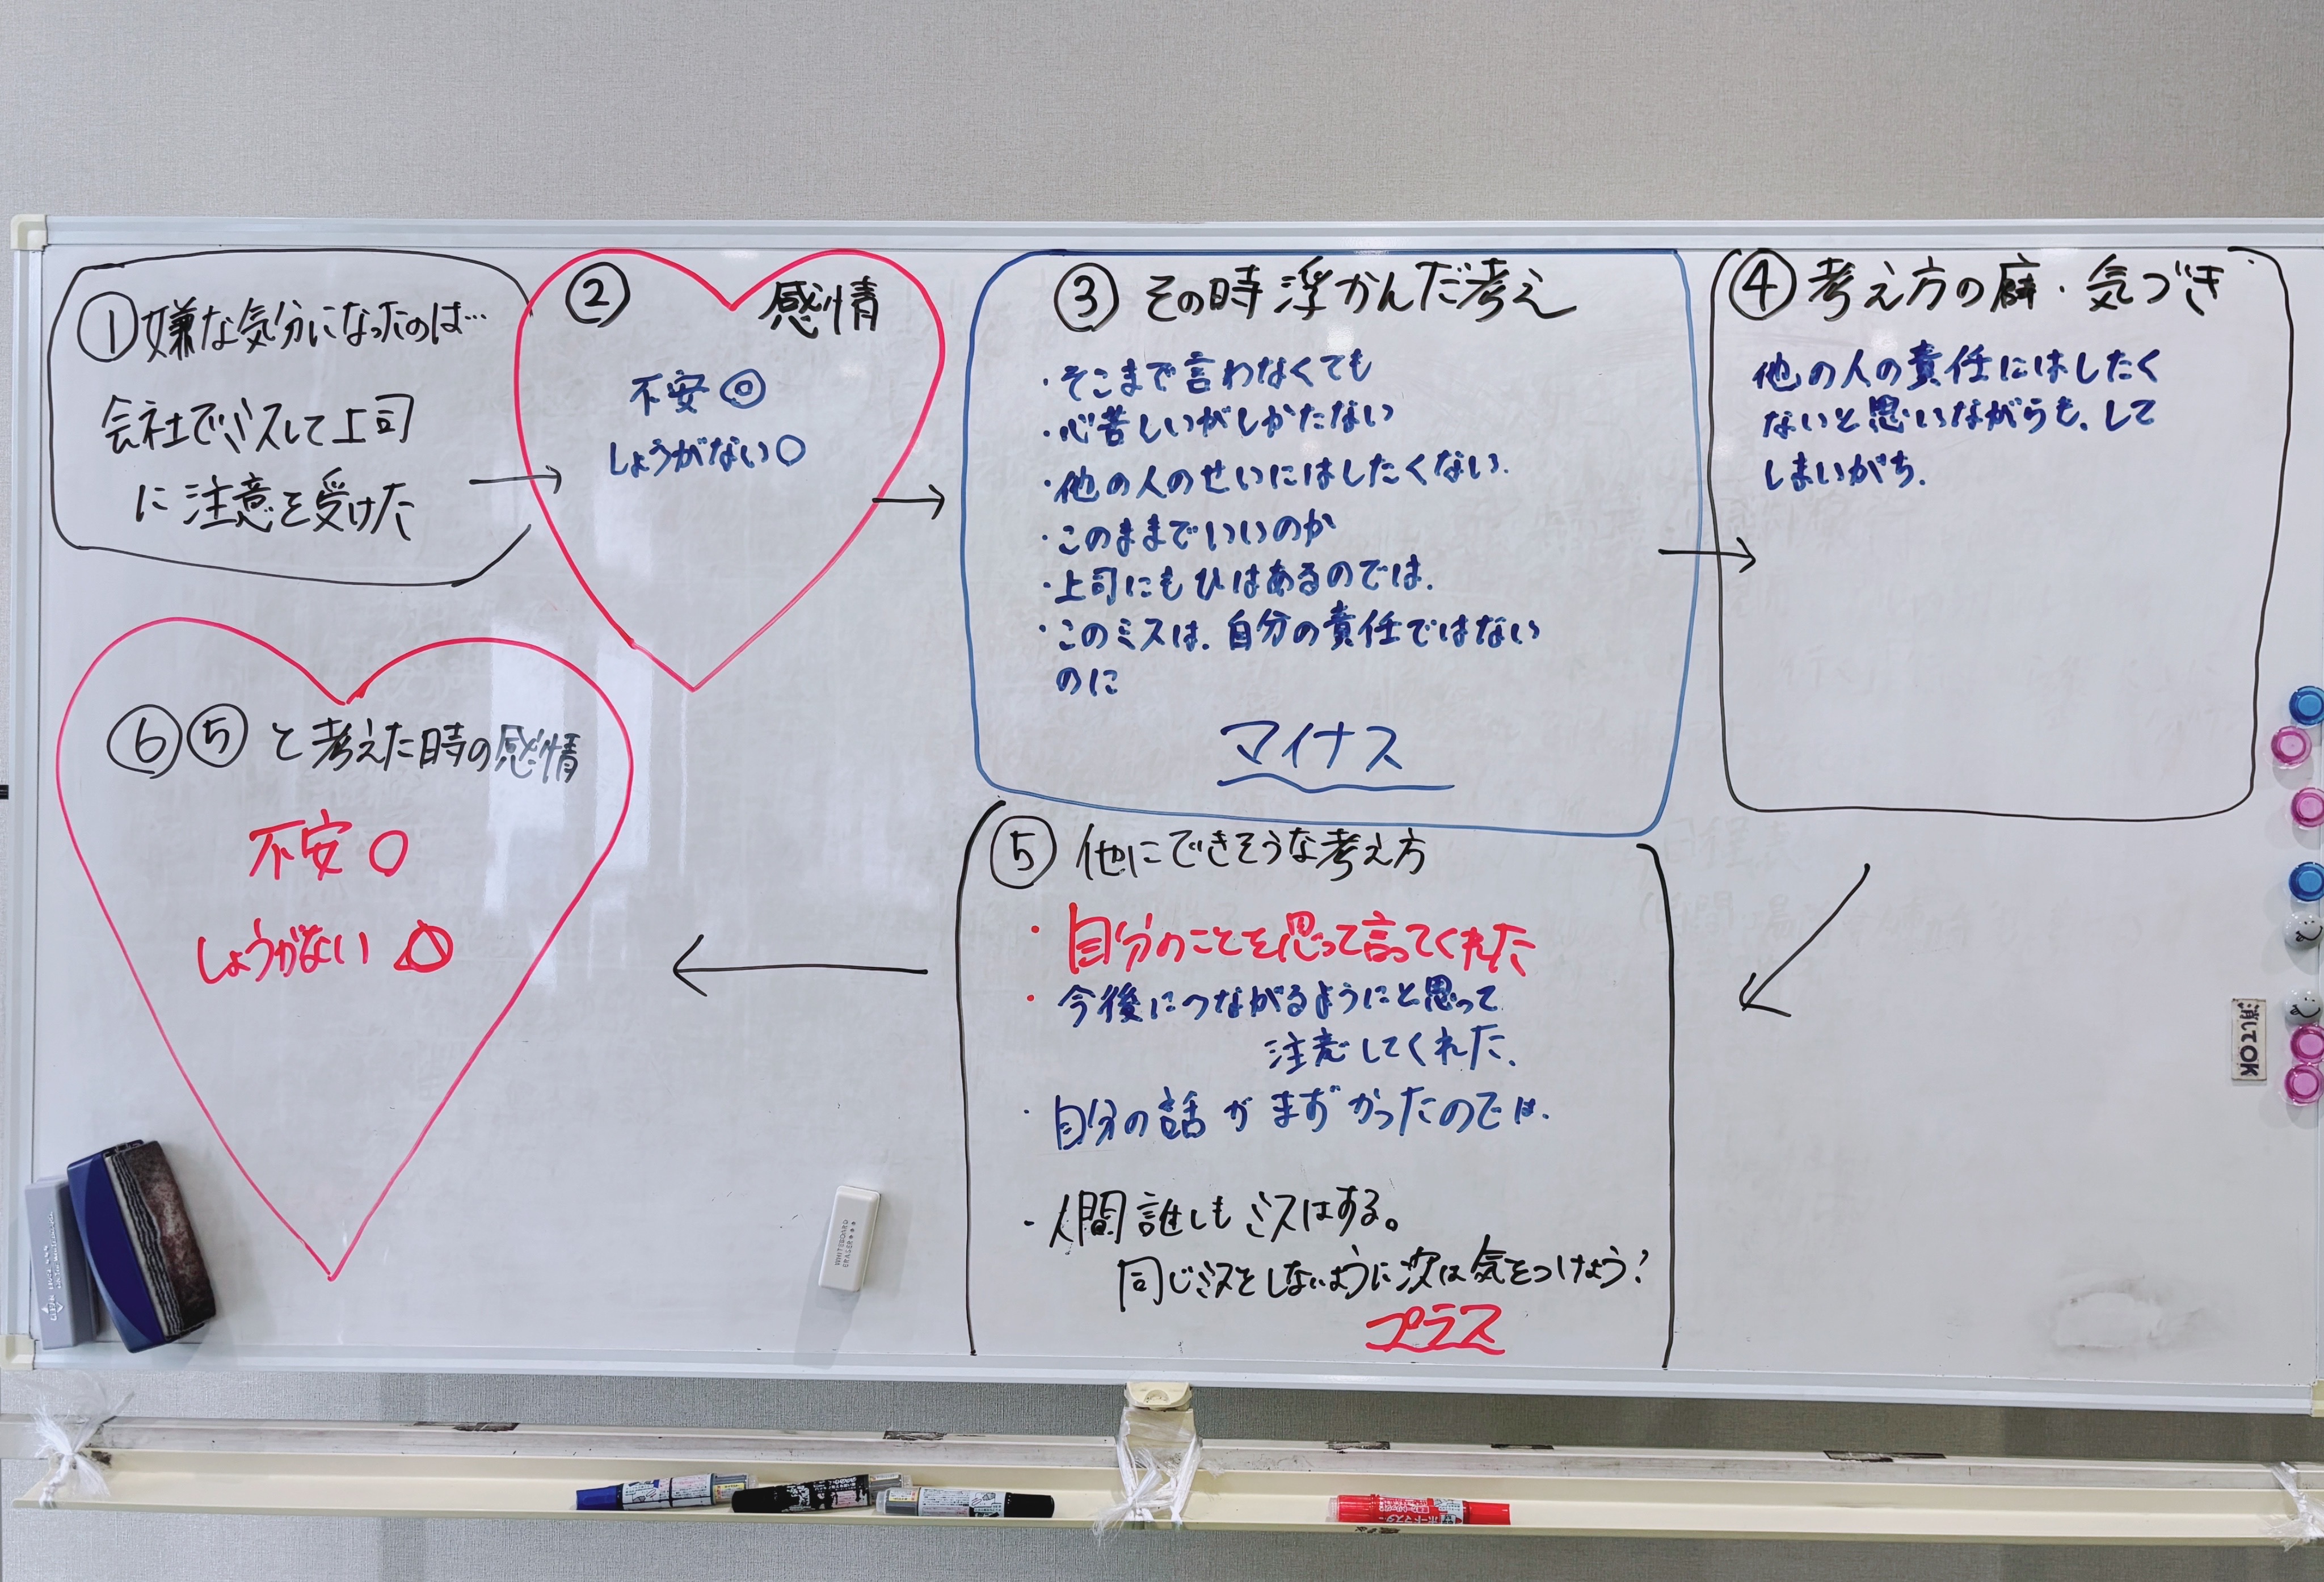 ①嫌な気分になったのは…
会社でミスして上司
に注意を受けた
② 感情
不安◎
しょうがない○
③ その時浮かんだ考え
・そこまで言わなくても
・心苦しいがしかたない
・他の人のせいにはしたくない.
・このままでいいのか
・上司にもひはあるのでは.
・このミスは.自分の責任ではない
のに
マイナス
④考え方の癖・気づき
他の人の責任にはしたく
ないと思いながらも、して
しまいがち.
⑤ 他にできそうな考え方
・自分のことを思って言ってくれた
・今後につながるようにと思って
注意してくれた.
・自分の話がまずかったのでは.
・人間誰しもミスはする。
同じミスをしないように次は気をつけよう!
プラス
⑥⑤と考えた時の感情
不安○
しょうがない△
消してOK
WHITEBOARD
ERASER